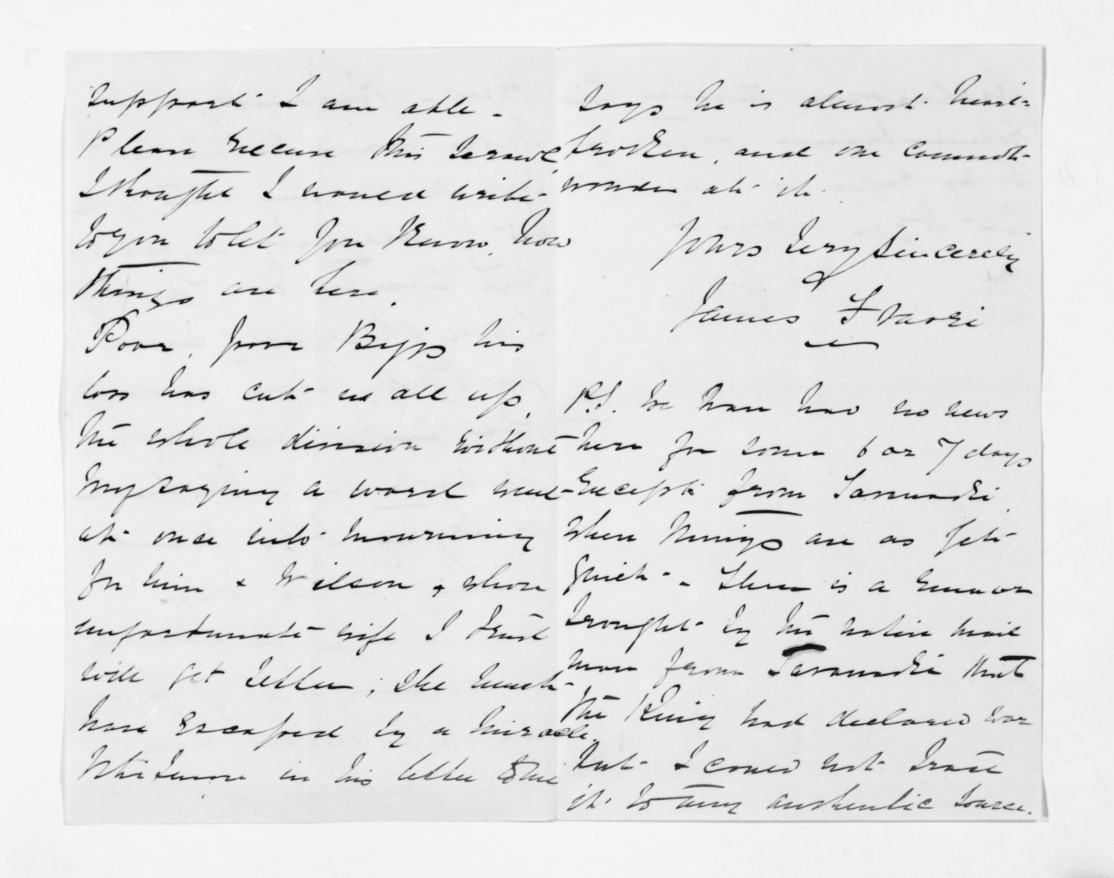 support I am able.
Please Excuse this scrawl
I thought I would write
to you to let you know, how
things are here.
Poor, poor Biggs his
loss has cut us all up,
the whole division without
my saying a word went
at once into mourning
for him & Wilson, whose
unfortunate wife I trust
will get better; she must
have Escaped by a miracle.
Whitmore in his letter to me
says he is almost heart-
broken, and one cannot
wonder at it.
Yours very sincerely
James Fraser
P.S. We have had no news
here for some 6 or 7 days
Except from Taranaki,
where things are as yet
quiet. There is a rumour
brought by the native mail
man from Taranaki that
the King had declared war
but I could not trace
it to any authentic source.